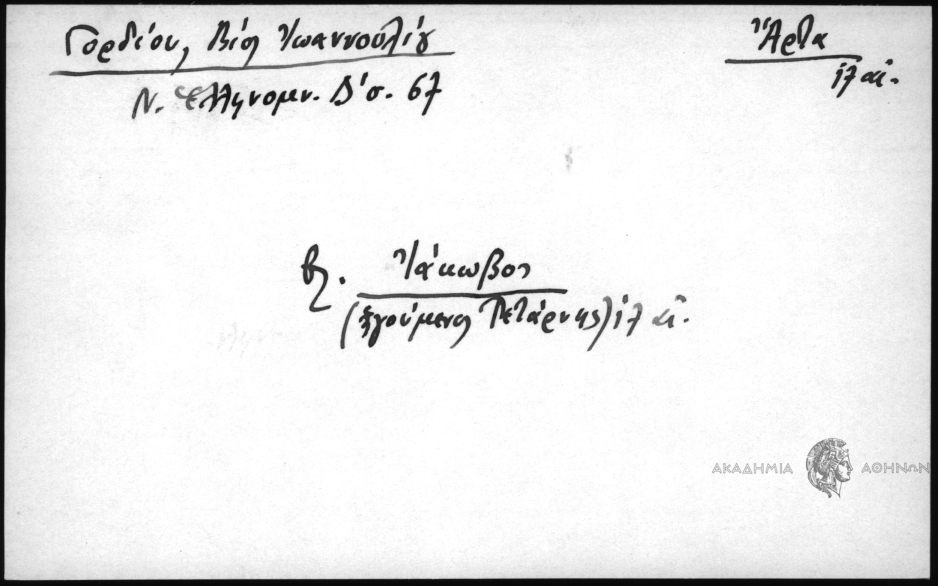 Γορδίου, Βίος Ἰωαννουλίου
Ἄρτα
Ν. Ἑλληνομν. Δ' σ. 67
ιζ αἰ.
βλ. Ἰάκωβος
(ἡγούμενος Πετάρνης) ιζ αἰ.
ΑΚΑΔΗΜΙΑ ΑΘΗΝΩΝ